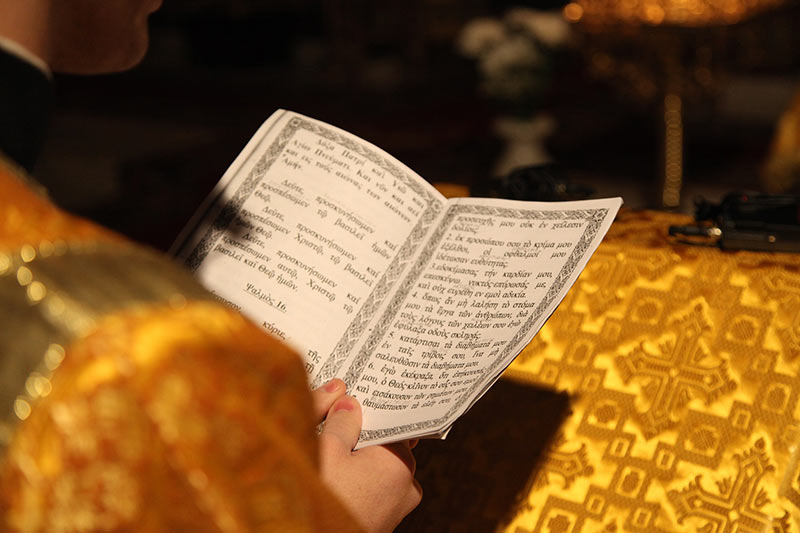 Δόξα Πατρὶ καὶ Υἱῷ καὶ
Ἁγίῳ Πνεύματι. Καὶ νῦν καὶ ἀεὶ
καὶ εἰς τοὺς αἰῶνας τῶν αἰώνων
Ἀμήν.
Δεῦτε, προσκυνήσωμεν καὶ
προσπέσωμεν τῷ βασιλεῖ ἡμῶν
Θεῷ.
Δεῦτε, προσκυνήσωμεν καὶ
προσπέσωμεν Χριστῷ, τῷ βασιλεῖ
Θεῷ.
Δεῦτε, προσκυνήσωμεν καὶ
προσπέσωμεν αὐτῷ, Χριστῷ, τῷ
βασιλεῖ καὶ Θεῷ ἡμῶν.
Ψαλμὸς 16.
κύριε,
τῆς
προσευχῆς μου οὐκ ἐν χείλεσιν
δολίοις.
2. ἐκ προσώπου σου τὸ κρίμα μου
ἐξέλθοι, οἱ ὀφθαλμοί μου
ἰδέτωσαν εὐθύτητας.
3. ἐδοκίμασας τὴν καρδίαν μου,
ἐπεσκέψω νυκτός·ἐπύρωσάς με,
καὶ οὐχ εὑρέθη ἐν ἐμοὶ ἀδικία.
4. ὅπως ἂν μὴ λαλήσῃ τὸ στόμα
μου τὰ ἔργα τῶν ἀνθρώπων, διὰ
τοὺς λόγους τῶν χειλέων σου ἐγὼ
ἐφύλαξα ὁδοὺς σκληράς.
5. κατάρτισαι τὰ διαβήματά μου
ἐν ταῖς τρίβοις σου, ἵνα μὴ
σαλευθῶσιν τὰ διαβήματά μου.
6. ἐγὼ ἐκέκραξα, ὅτι ἐπήκουσάς
μου, ὁ Θεός·κλῖνον τὸ οὖς σου ἐμοὶ
καὶ εἰσάκουσον τῶν ῥημάτων μου.
θαυμάστωσον τὰ ἐλέη σου,